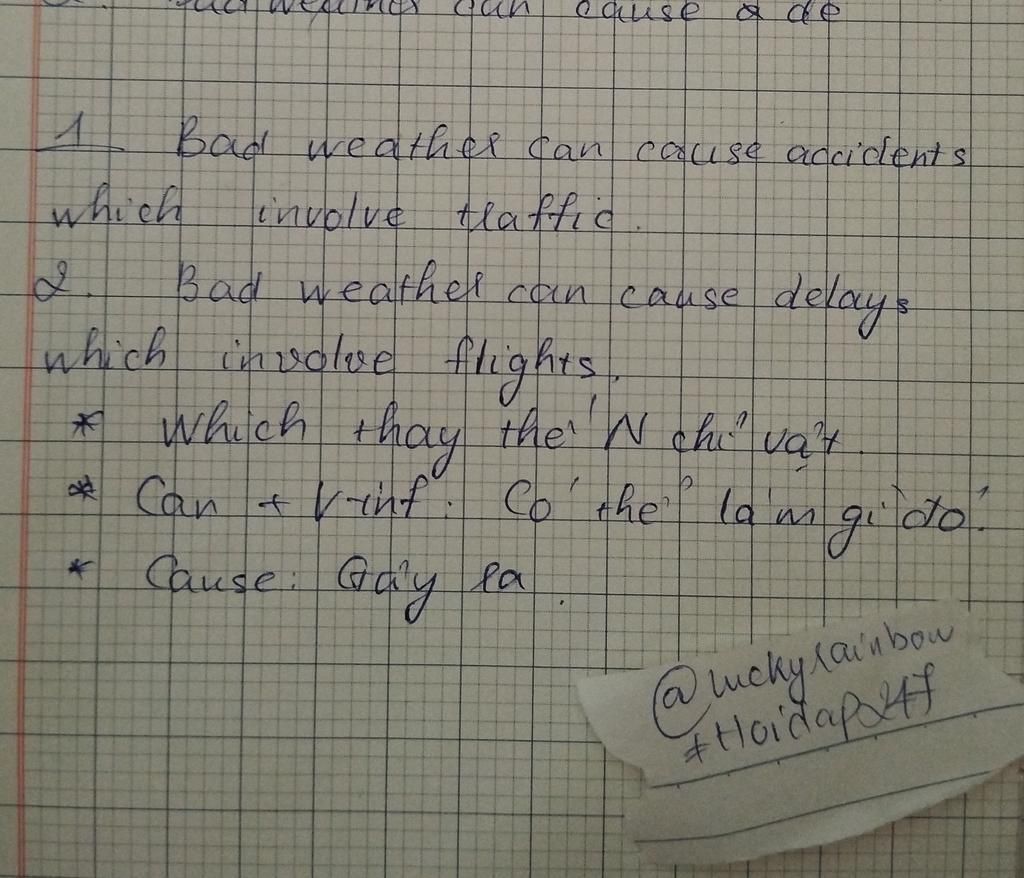 Bad weather can cause a de
1 Bad weather can cause accidents
which involve traffic.
2. Bad weather can cause delays
which involve flights.
* Which thay thế N chỉ vật.
* Can + V-inf: Có thể làm gì đó.
* Cause: Gây ra.
@luckyrainbow
#Hoidap247